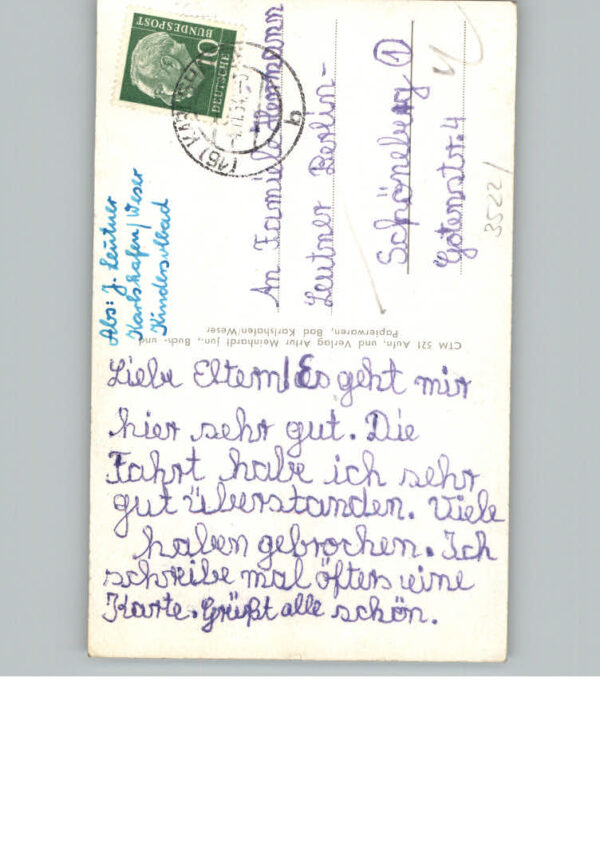 Abs: J. Leutner
Karlshafen/Weser
Kindersolbad
DEUTSCHE
BUNDESPOST
10
b
An Familie Herrmann
Leutner Berlin-
Schöneberg (1)
Gotenstr. 4
3522/
CTM 521 Aufn. und Verlag Artur Meinhardt jun., Buch- und
Papierwaren, Bad Karlshafen/Weser
Liebe Eltern! Es geht mir
hier sehr gut. Die
Fahrt habe ich sehr
gut überstanden. Viele
haben gebrochen. Ich
schreibe mal öfters eine
Karte. Grüßt alle schön.